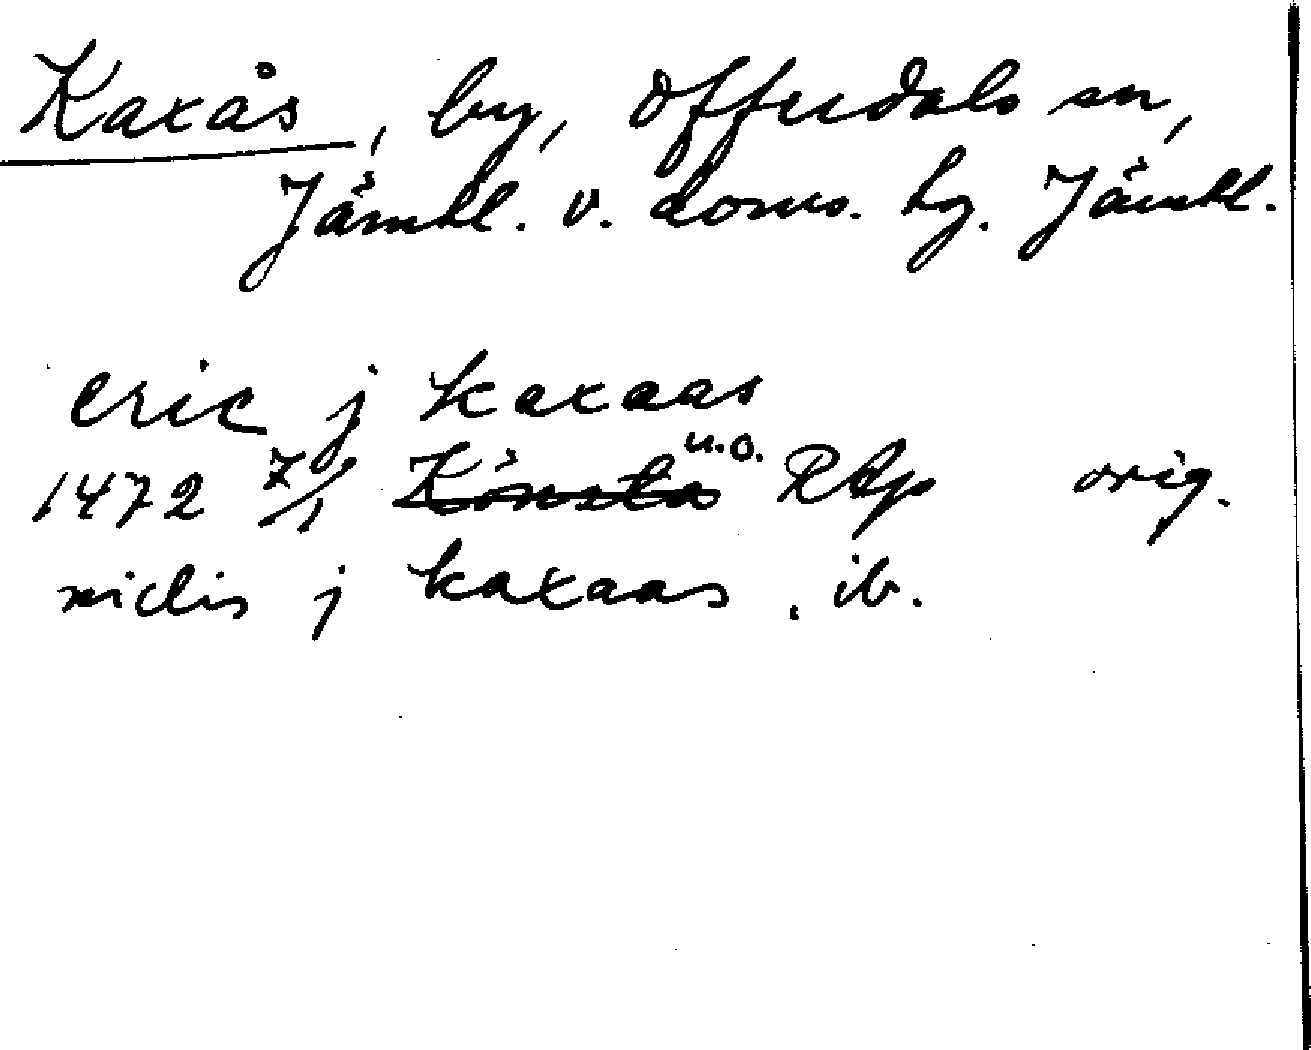 Kaxås, by, Offerdals sn,
Jämtl. v. doms. hg. Jämtl.
eric j kaxaas
1472 7/1 Könsta u.o. RAp orig.
niclis j kaxaas . ib.